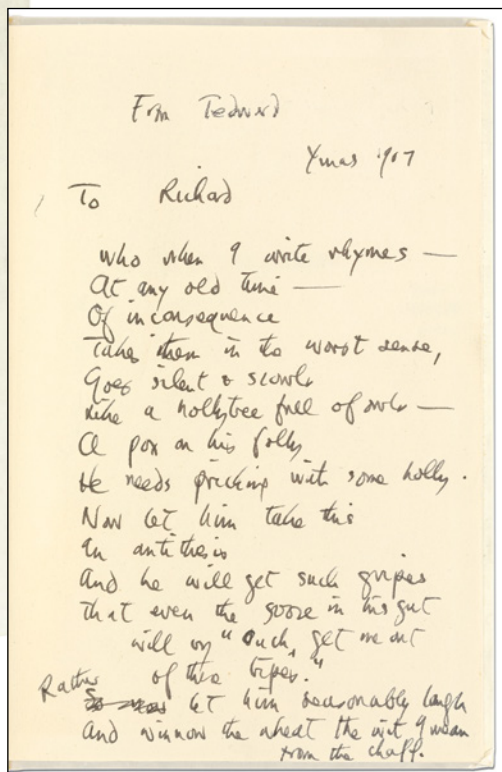 From Tedward
Xmas 1967
To Richard
who when I write rhymes —
At any old time —
Of inconsequence
Takes them in the worst sense,
Goes silent & scowls
Like a hollytree full of owls —
A pox on his folly
He needs pricking with some holly.
Now let him take this
In antithesis
And he will get such gripes
That even the goose in his gut
will cry "Ouch, get me out
of these tripes."
Rather let him reasonably laugh
And winnow the wheat the wit I mean
from the chaff.